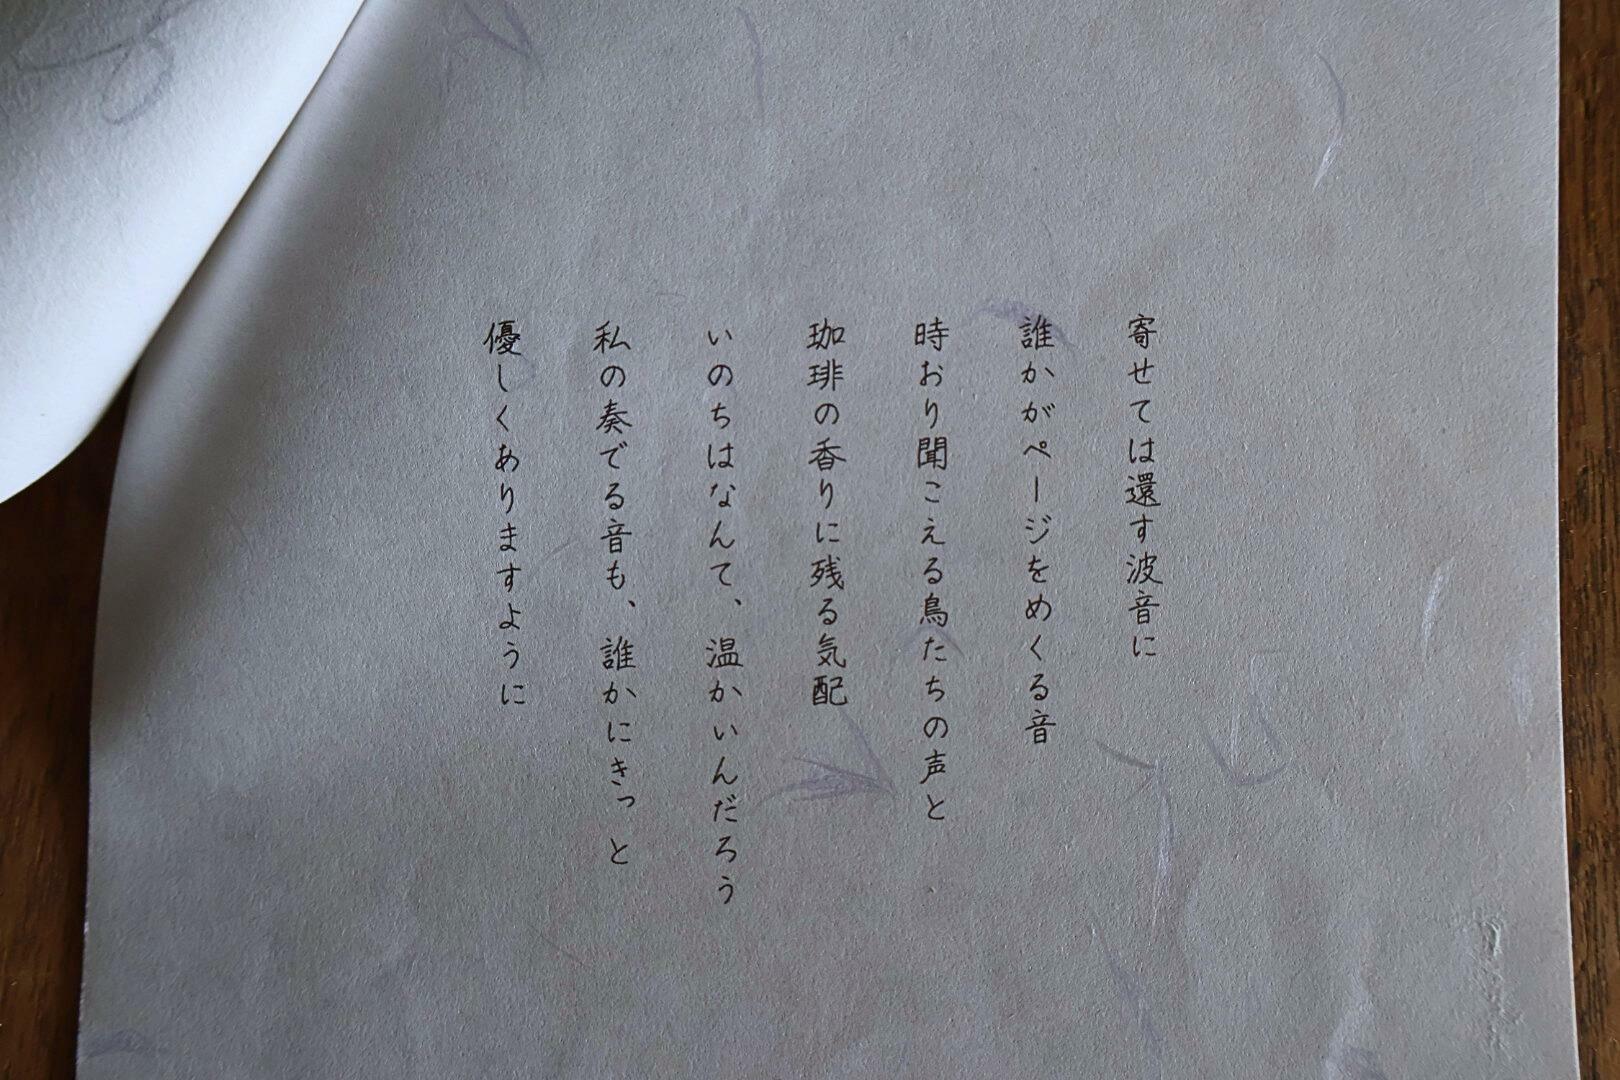 寄せては還す波音に
誰かがページをめくる音
時おり聞こえる鳥たちの声と
珈琲の香りに残る気配
いのちはなんて、温かいんだろう
私の奏でる音も、誰かにきっと
優しくありますように